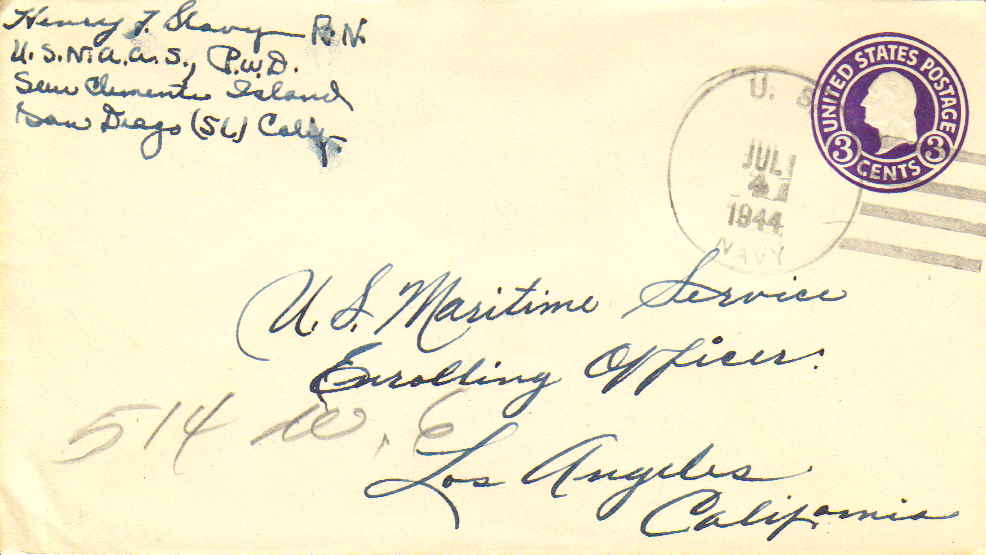 Henry J. Slavy R.N.
U.S.N.A.A.S., P.W.D.
San Clemente Island
San Diego (56) Calif.
UNITED STATES POSTAGE
3 CENTS 3
U. S.
JUL
4
1944
NAVY
U. S. Maritime Service
Enrolling Officer.
514 W. 6
Los Angeles
California